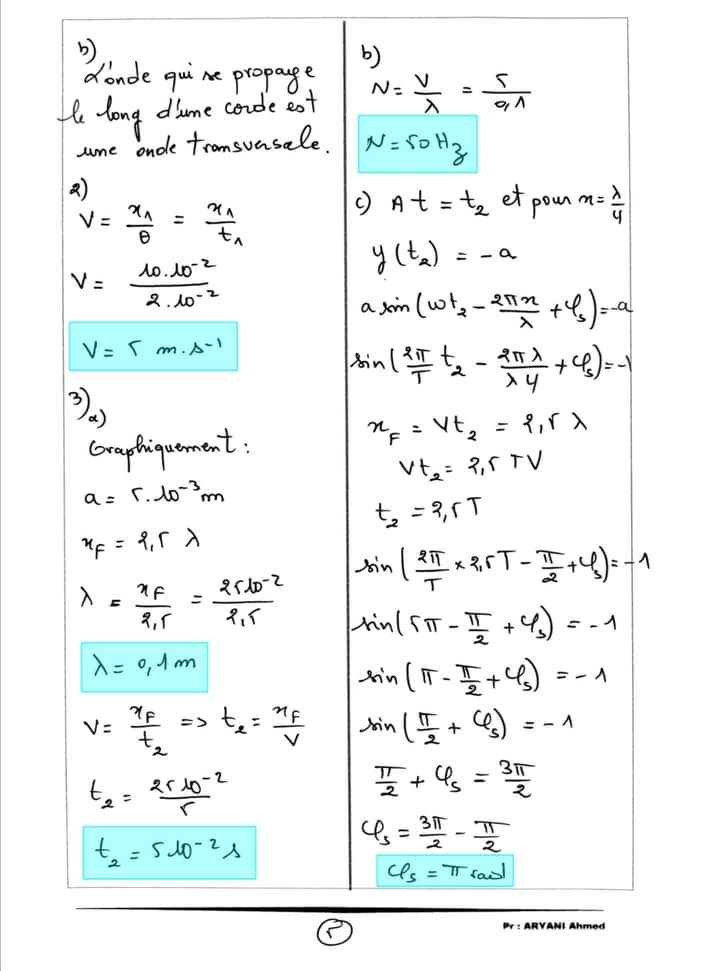 b)
L'onde qui se propage
le long d'une corde est
une onde transversale.
2)
V = x₁/θ = x₁/t₁
V = 10.10⁻²/2.10⁻²
V = 5 m.s⁻¹
3) a)
Graphiquement :
a = 5.10⁻³ m
x_F = 2,5 λ
λ = x_F/2,5 = 25.10⁻²/2,5
λ = 0,1 m
V = x_F/t₂ => t₂ = x_F/V
t₂ = 25.10⁻²/5
t₂ = 5.10⁻² s
b)
N = V/λ = 5/0,1
N = 50 Hz
c) A t = t₂ et pour x = λ/4
y(t₂) = -a
a sin(ωt₂ - 2πx/λ + φₛ) = -a
sin(2π/T t₂ - 2πλ/λ4 + φₛ) = -1
x_F = Vt₂ = 2,5 λ
Vt₂ = 2,5 TV
t₂ = 2,5T
sin(2π/T × 2,5T - π/2 + φₛ) = -1
sin(5π - π/2 + φₛ) = -1
sin(π - π/2 + φₛ) = -1
sin(π/2 + φₛ) = -1
π/2 + φₛ = 3π/2
φₛ = 3π/2 - π/2
φₛ = π rad
Pr : ARYANI Ahmed